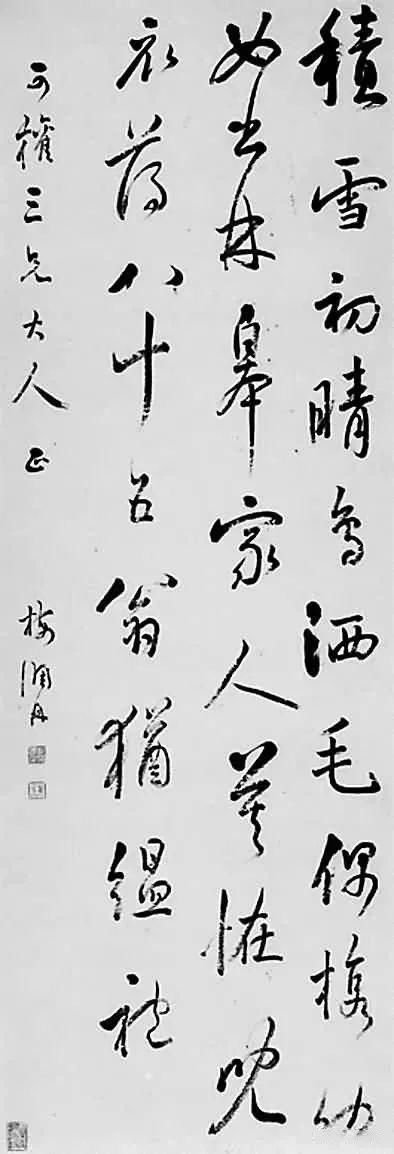 積雪初晴鳥洒毛偶携幼
女出林皋家人莫恠兒
衣薄八十五翁猶縕袍
可權三兄大人正
梅調鼎